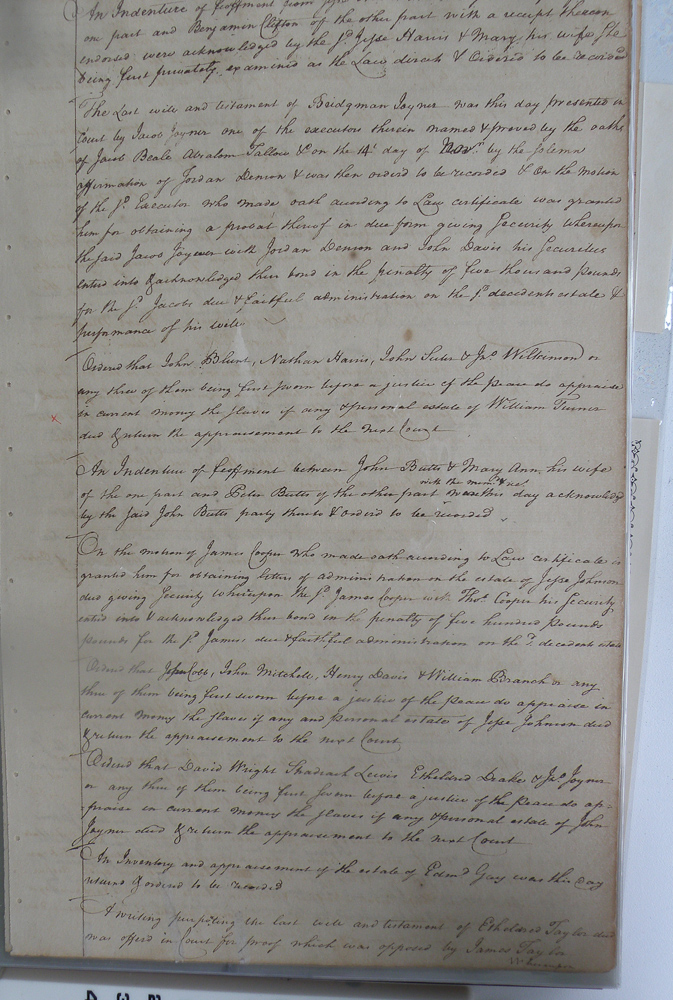 An Indenture of feoffment from
one part and Benjamin Clifton of the other part with a receipt thereon
endorsed were acknowledged by the sd. Jesse Harris & Mary his wife she
being first privately examined as the Law directs & Ordered to be recorded
The Last will and testament of Bridgman Joyner was this day presented in
Court by Jacob Joyner one of the executors therein named & proved by the oaths
of Jacob Beale Absalom Tallow &c on the 14th day of Novr. by the solemn
affirmation of Jordan Denson & was then orderd to be recorded & On the motion
of the sd. Executor who made oath according to Law certificate was granted
him for obtaining a probat thereof in due form giving Security whereupon
the said Jacob Joyner with Jordan Denson and John Davis his Securities
enterd into & acknowledged their bond in the penalty of five thousand pounds
for the sd. Jacobs due & faithful administration on the sd. decedents estate &
performance of his will
Ordered that John Blunt, Nathan Harris, John Suter & Jno. Wilkinson or
any three of them being first sworn before a justice of the peace do appraise
in current money the slaves if any & personal estate of William Turner
decd & return the appraisement to the next Court
An Indenture of feoffment between John Butts & Mary Ann his wife
with the memo. & rec.
of the one part and Peter Butts of the other part was this day acknowledged
by the said John Butts party thereto & orderd to be recorded
On the motion of James Cooper who made oath according to Law certificate is
granted him for obtaining letters of administration on the estate of Jesse Johnson
decd giving Security whereupon the sd. James Cooper with Thos. Cooper his Security
enterd into & acknowledged their bond in the penalty of five hundred pounds
pounds for the sd. James due & faithful administration on the sd. decedents estate
Ordered that Jesse Cobb, John Mitchell, Henry Davis & William Branch or any
three of them being first sworn before a justice of the peace do appraise in
current money the slaves if any and personal estates of Jesse Johnson decd
& return the appraisement to the next Court
Ordered that David Wright Shadrach Lewis Etheldred Drake & Jno. Joyner
or any three of them being first sworn before a justice of the peace do ap=
=praise in current money the slaves if any & personal estate of John
Joyner decd & return the appraisement to the next Court
An Inventory and appraisement of the estate of Edmd Gay was this day
returnd & orderd to be recorded
A writing purporting the last will and testament of Etheldred Taylor decd
was offerd in Court for proof which was opposed by James Taylor